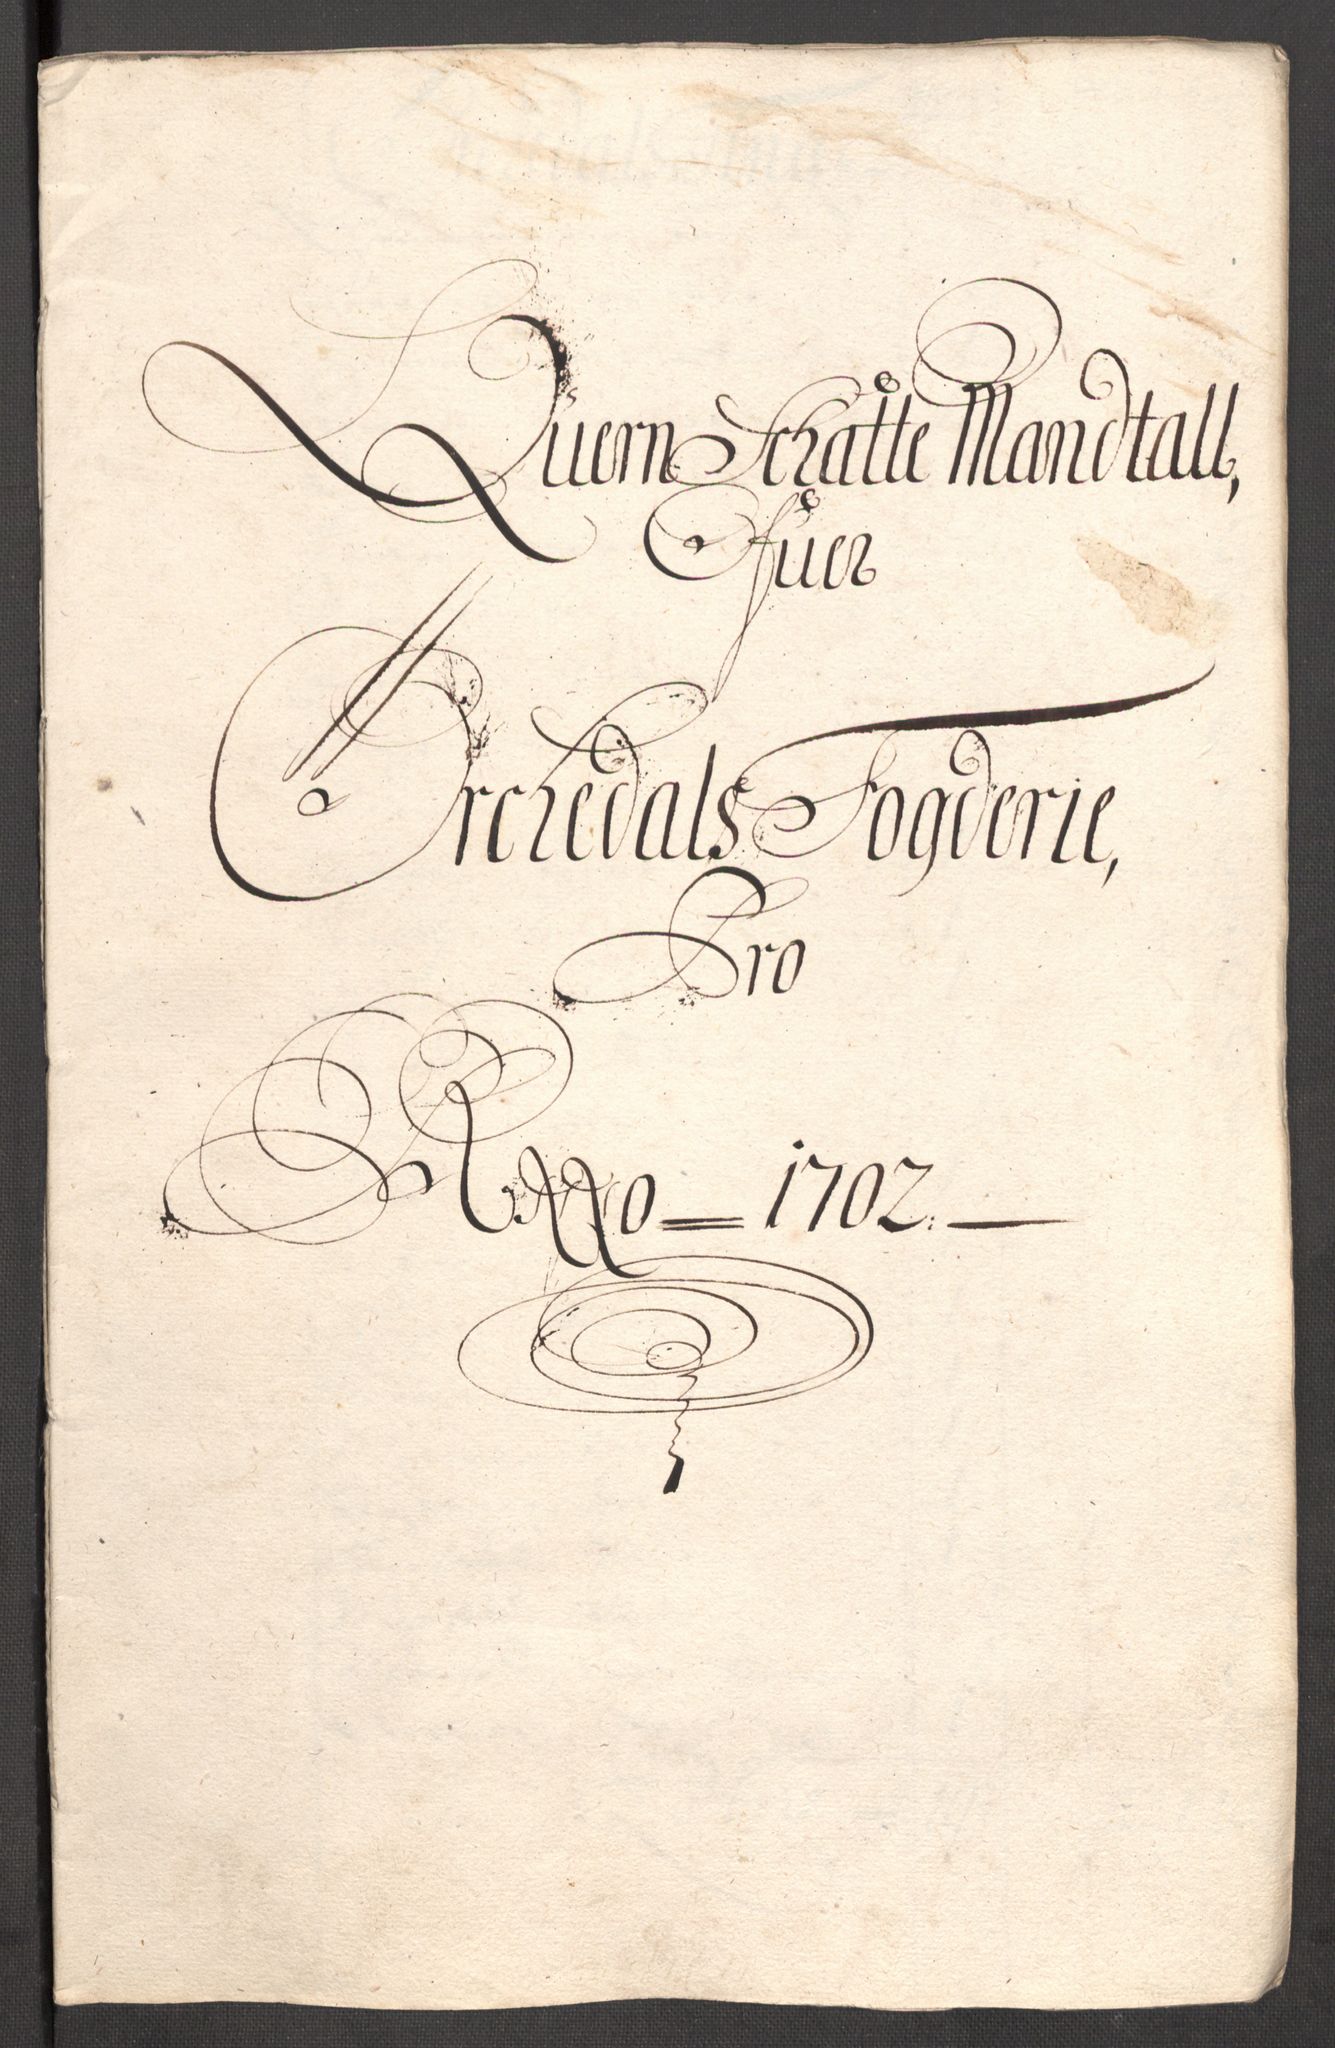 Quern Schatte Mandtall,
Øfuer
Orchedals Fogderie,
Pro
Anno 1702.